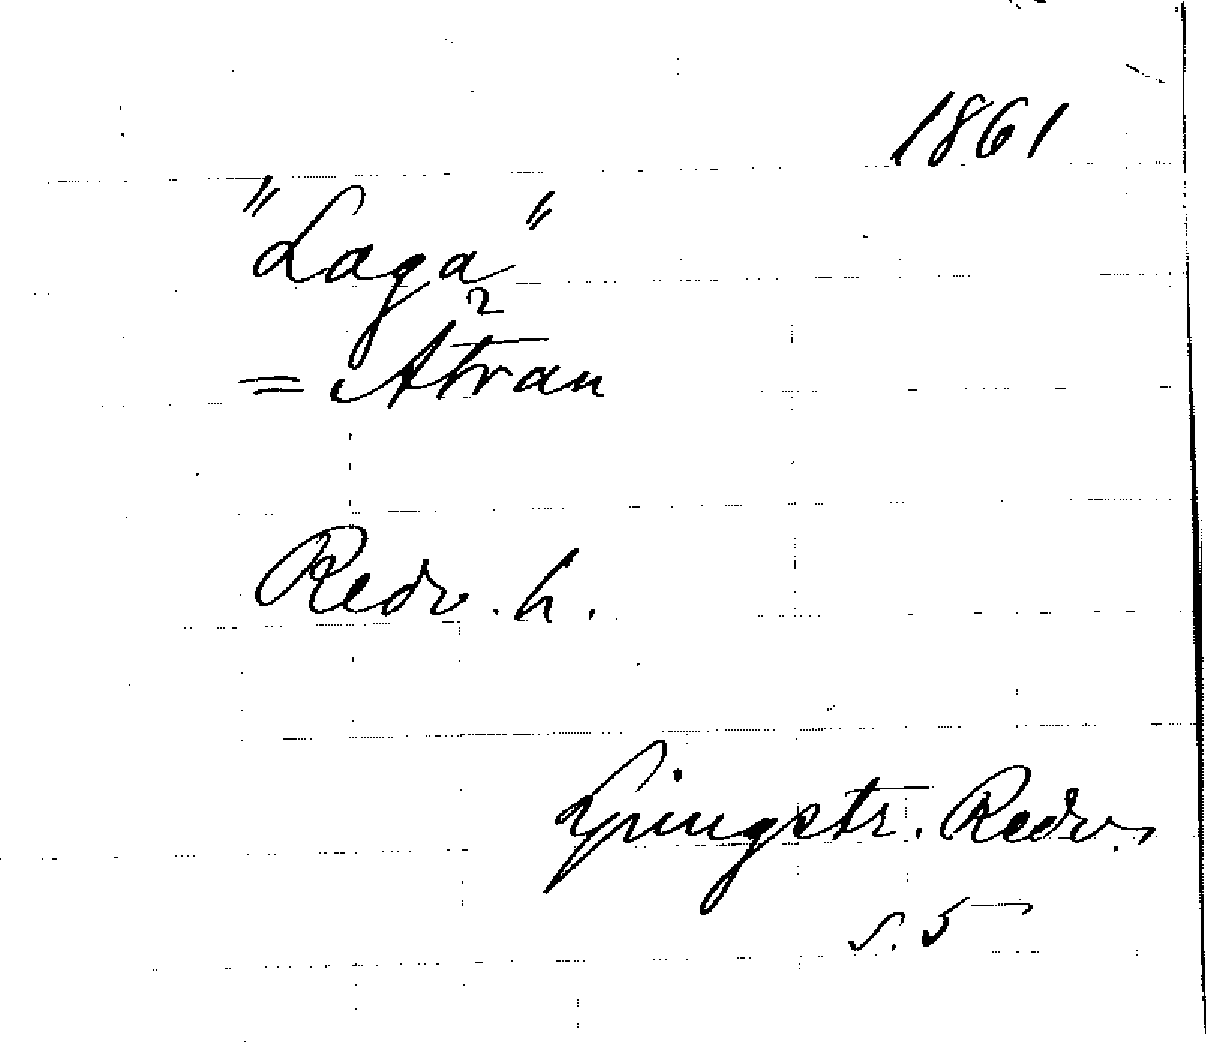 1861
"Laga"
2
= Atran
Redv. h.
Ljungstr. Redv.,
s. 5